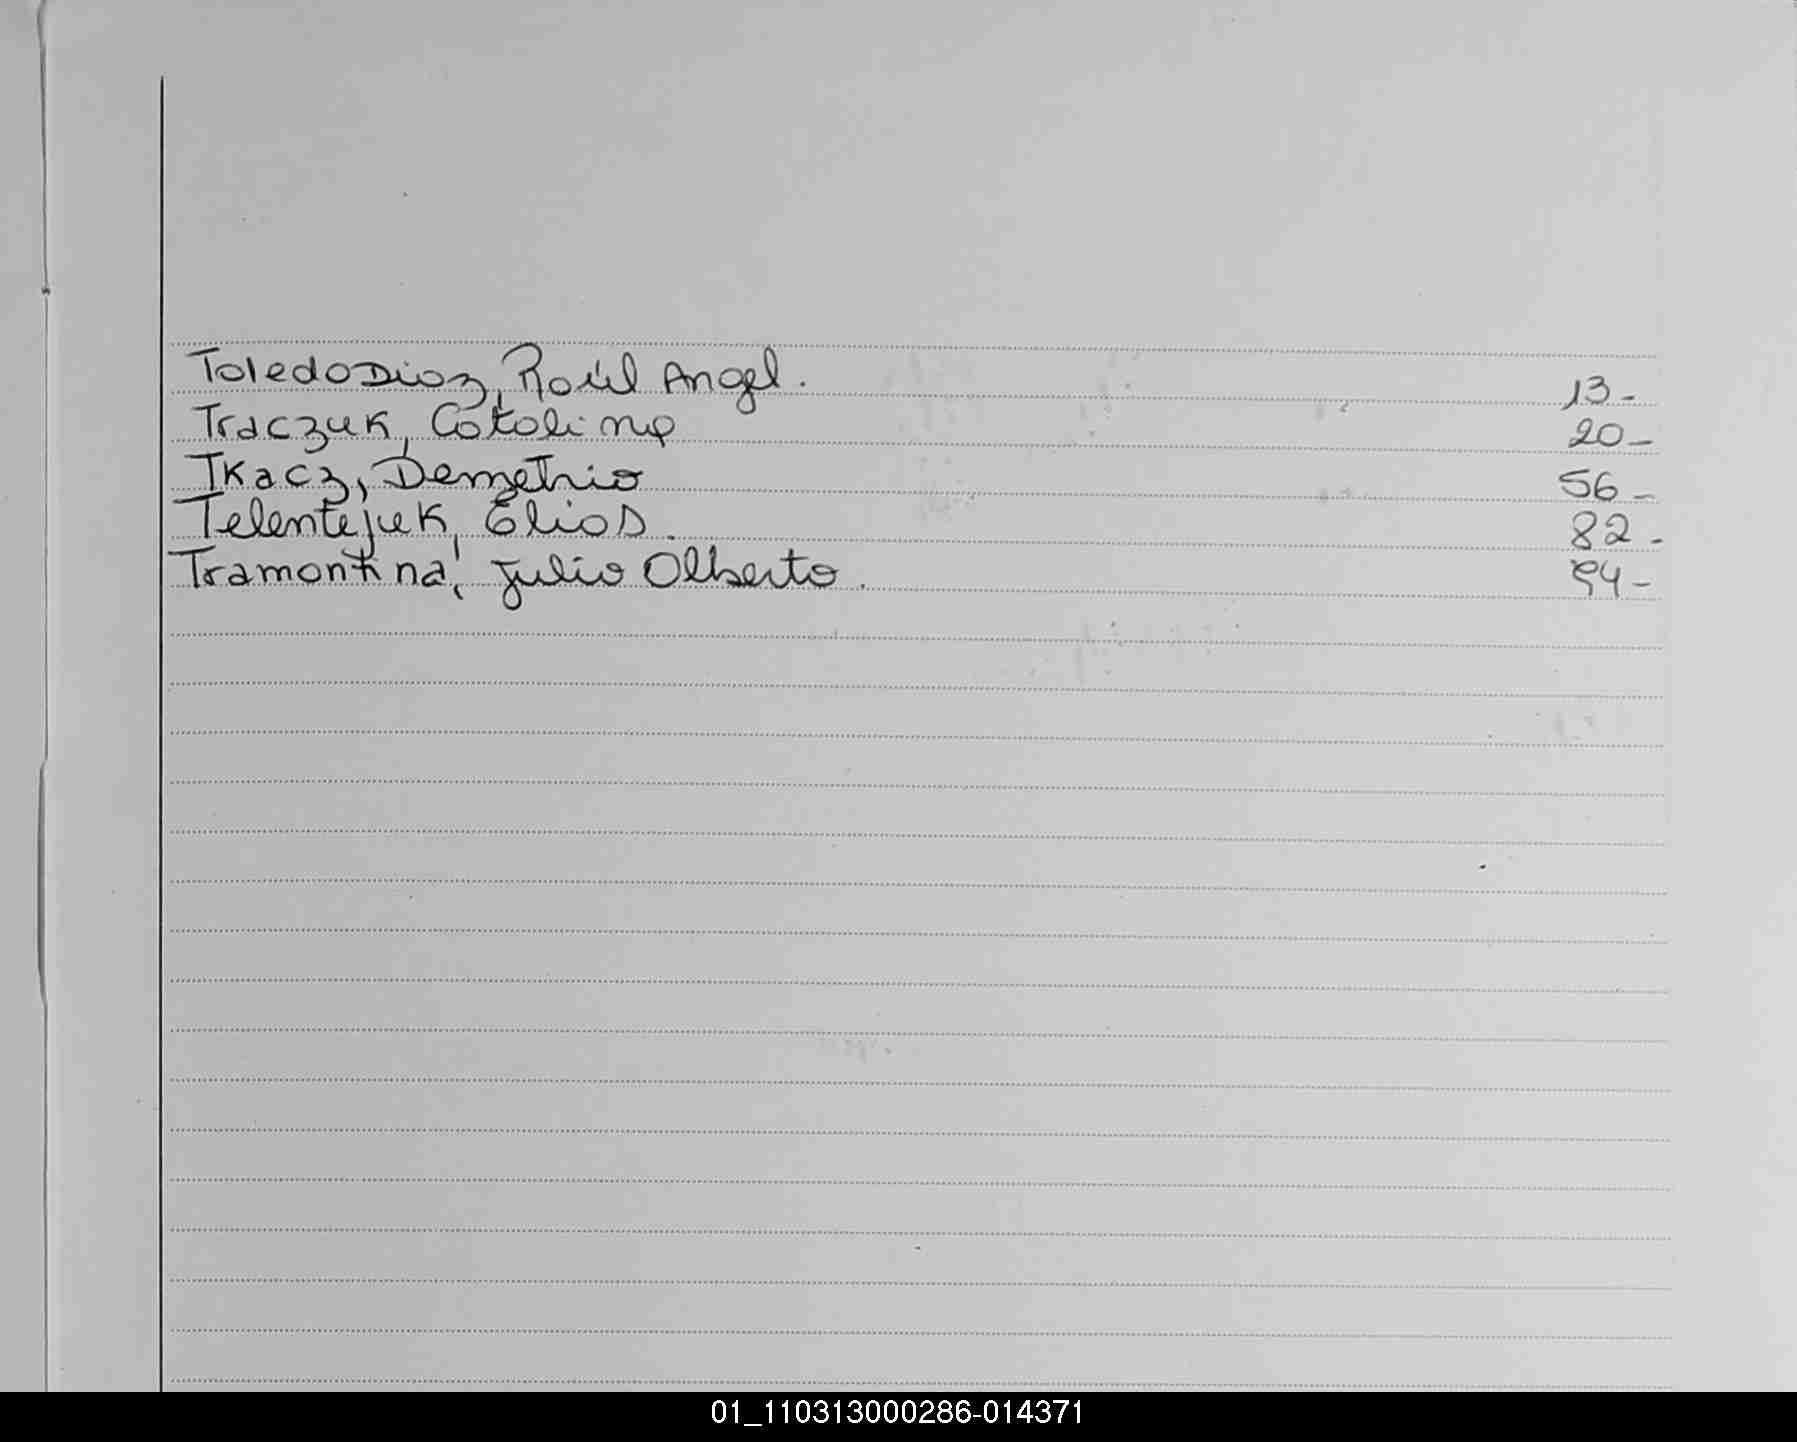 Toledo Diaz, Raúl Angel. 13-
Traczuk, Catalina 20-
Tkacz, Demetrio 56-
Telentejuk, Elias. 82-
Tramontina, Julio Alberto. 94-
01_110313000286-014371